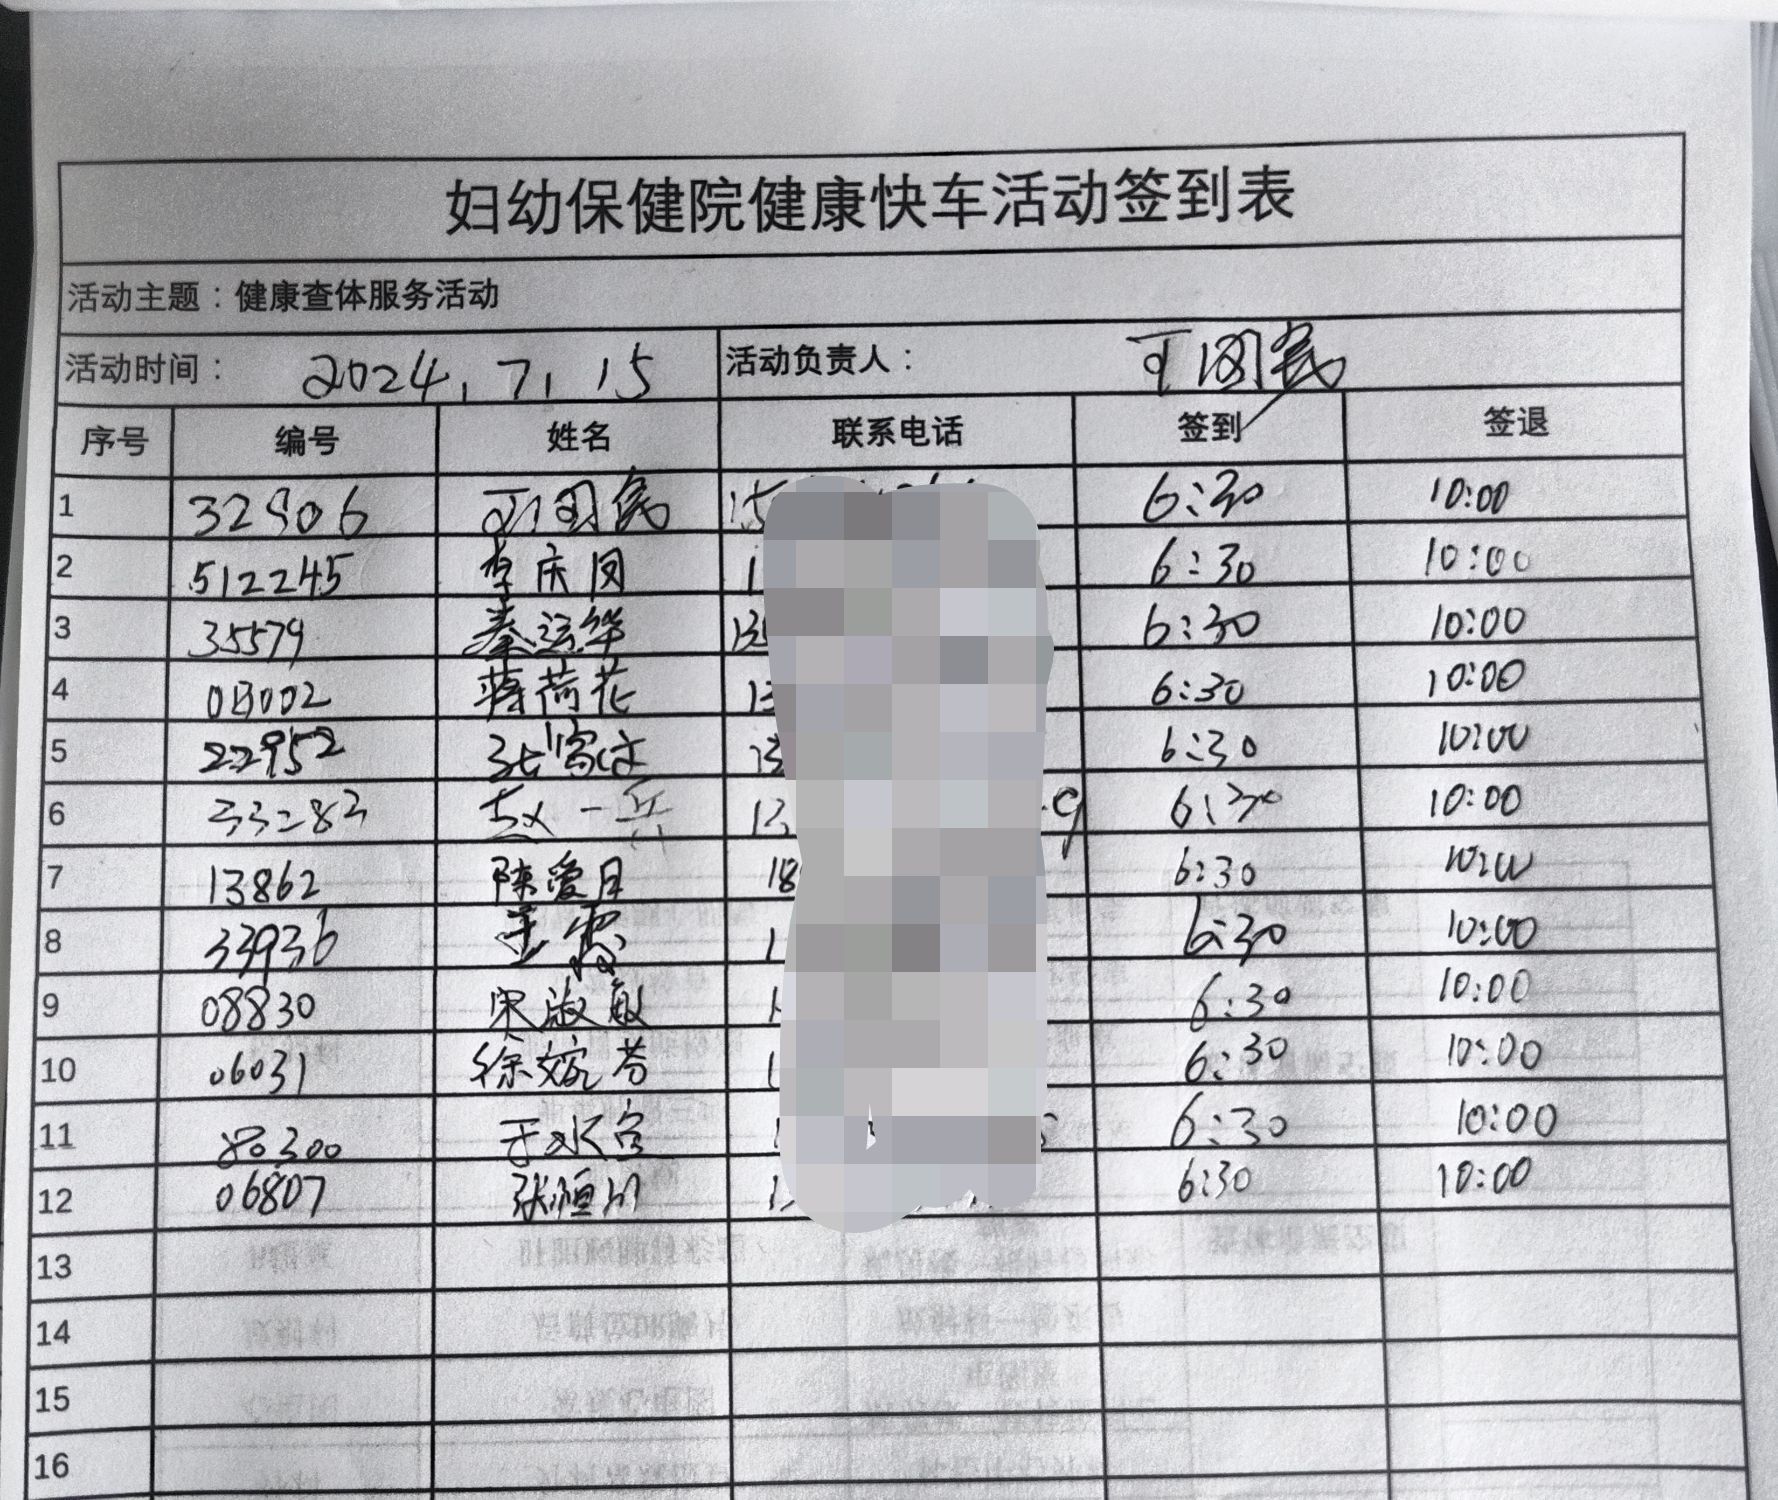 妇幼保健院健康快车活动签到表
活动主题：健康查体服务活动
活动时间： 2024.7.15 活动负责人：
序号 编号 姓名 联系电话 签到 签退
1 32906 6:30 10:00
2 512245 李庆凤 6:30 10:00
3 35579 秦运华 6:30 10:00
4 蒋荷花 6:30 10:00
5 22952 6:30 10:00
6 33283 赵一兵 13 6:30 10:00
7 13862 陈爱月 18 6:30 10:00
8 33936 6:30 10:00
9 08830 宋淑敏 6:30 10:00
10 06031 徐婉芬 6:30 10:00
11 80300 6:30 10:00
12 06807 张恒川 6:30 10:00
13
14
15
16